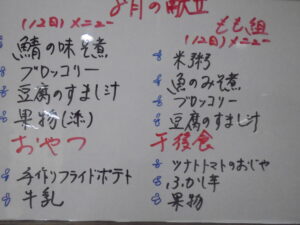 8月の献立
(12日)メニュー
鯖の味そ煮
ブロッコリー
豆腐のすまし汁
果物(漆)
おやつ
手作りフライドポテト
牛乳
もも組
(12日)メニュー
米粥
魚のみそ煮
ブロッコリー
豆腐のすまし汁
午後食
ツナトマトのおじや
ふかし芋
果物